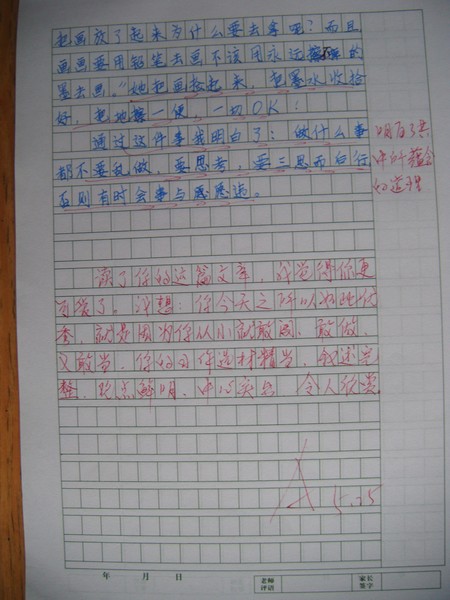 把画放了起来为什么要去拿呢？而且
画画要用铅笔去画不该用永远擦不掉的
墨去画。"她把画放起来，把墨水收拾
好，把地擦一便，一切OK！
通过这件事我明白了：做什么事
都不要乱做，要思考，要三思而后行
否则有时会事与愿违。
明白了其
中所蕴含
的道理
读了你的这篇文章，我觉得你更
可爱了。我想：你今天之所以如此优
秀，就是因为你从小就敢闯、敢做、
又敢当，你的习作选材精当，叙述完
整，观点鲜明、中心突出 令人欣赏
A 5.25
年 月 日
老师评语
家长签字